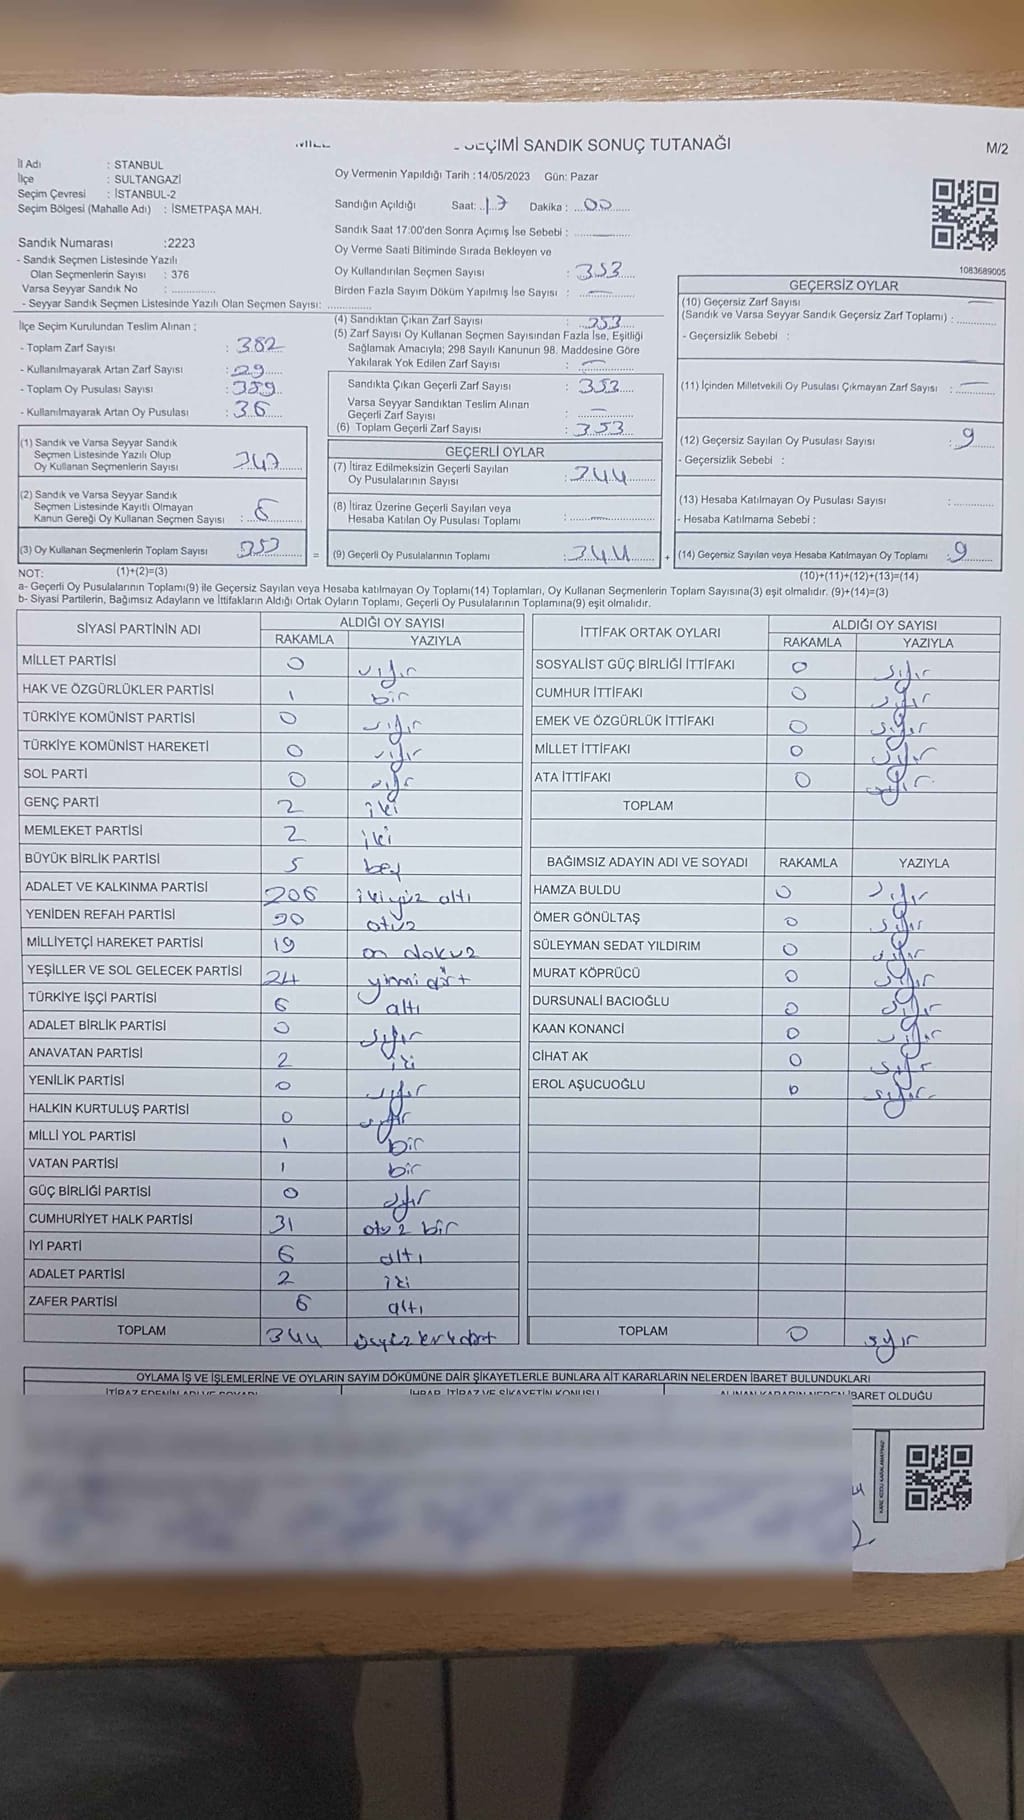 SEÇİMİ SANDIK SONUÇ TUTANAĞI
M/2
İl Adı : STANBUL
İlçe : SULTANGAZİ
Seçim Çevresi : İSTANBUL-2
Seçim Bölgesi (Mahalle Adı) : İSMETPAŞA MAH.
Oy Vermenin Yapıldığı Tarih : 14/05/2023 Gün: Pazar
Sandığın Açıldığı Saat: 17 Dakika : 00
Sandık Saat 17:00'den Sonra Açımış İse Sebebi :
Sandık Numarası :2223
- Sandık Seçmen Listesinde Yazılı
Olan Seçmenlerin Sayısı : 376
Varsa Seyyar Sandık No :
- Seyyar Sandık Seçmen Listesinde Yazılı Olan Seçmen Sayısı:
Oy Verme Saati Bitiminde Sırada Bekleyen ve
Oy Kullandırılan Seçmen Sayısı : 353
Birden Fazla Sayım Döküm Yapılmış İse Sayısı : —
1083689005
İlçe Seçim Kurulundan Teslim Alınan :
- Toplam Zarf Sayısı : 382
- Kullanılmayarak Artan Zarf Sayısı : 29
- Toplam Oy Pusulası Sayısı : 389
- Kullanılmayarak Artan Oy Pusulası : 36
(1) Sandık ve Varsa Seyyar Sandık
Seçmen Listesinde Yazılı Olup
Oy Kullanan Seçmenlerin Sayısı 347
(2) Sandık ve Varsa Seyyar Sandık
Seçmen Listesinde Kayıtlı Olmayan
Kanun Gereği Oy Kullanan Seçmen Sayısı : 6
(3) Oy Kullanan Seçmenlerin Toplam Sayısı 353
(4) Sandıktan Çıkan Zarf Sayısı : 353
(5) Zarf Sayısı Oy Kullanan Seçmen Sayısından Fazla İse, Eşitliği
Sağlamak Amacıyla; 298 Sayılı Kanunun 98. Maddesine Göre
Yakılarak Yok Edilen Zarf Sayısı : —
Sandıkta Çıkan Geçerli Zarf Sayısı : 353
Varsa Seyyar Sandıktan Teslim Alınan
Geçerli Zarf Sayısı : —
(6) Toplam Geçerli Zarf Sayısı : 353
GEÇERLİ OYLAR
(7) İtiraz Edilmeksizin Geçerli Sayılan
Oy Pusulalarının Sayısı : 344
(8) İtiraz Üzerine Geçerli Sayılan veya
Hesaba Katılan Oy Pusulası Toplamı :
= (9) Geçerli Oy Pusulalarının Toplamı : 344 +
GEÇERSİZ OYLAR
(10) Geçersiz Zarf Sayısı
(Sandık ve Varsa Seyyar Sandık Geçersiz Zarf Toplamı) : —
- Geçersizlik Sebebi :
(11) İçinden Milletvekili Oy Pusulası Çıkmayan Zarf Sayısı : —
(12) Geçersiz Sayılan Oy Pusulası Sayısı : 9
- Geçersizlik Sebebi :
(13) Hesaba Katılmayan Oy Pusulası Sayısı :
- Hesaba Katılmama Sebebi :
(14) Geçersiz Sayılan veya Hesaba Katılmayan Oy Toplamı : 9
NOT: (1)+(2)=(3)
(10)+(11)+(12)+(13)=(14)
a- Geçerli Oy Pusulalarının Toplamı(9) ile Geçersiz Sayılan veya Hesaba katılmayan Oy Toplamı(14) Toplamları, Oy Kullanan Seçmenlerin Toplam Sayısına(3) eşit olmalıdır. (9)+(14)=(3)
b- Siyasi Partilerin, Bağımsız Adayların ve İttifakların Aldığı Ortak Oyların Toplamı, Geçerli Oy Pusulalarının Toplamına(9) eşit olmalıdır.
SİYASİ PARTİNİN ADI ALDIĞI OY SAYISI
RAKAMLA YAZIYLA
MİLLET PARTİSİ 0 sıfır
HAK VE ÖZGÜRLÜKLER PARTİSİ 1 bir
TÜRKİYE KOMÜNİST PARTİSİ 0 sıfır
TÜRKİYE KOMÜNİST HAREKETİ 0 sıfır
SOL PARTİ 0 sıfır
GENÇ PARTİ 2 iki
MEMLEKET PARTİSİ 2 iki
BÜYÜK BİRLİK PARTİSİ 5 beş
ADALET VE KALKINMA PARTİSİ 206 ikiyüz altı
YENİDEN REFAH PARTİSİ 30 otuz
MİLLİYETÇİ HAREKET PARTİSİ 19 on dokuz
YEŞİLLER VE SOL GELECEK PARTİSİ 24 yirmi dört
TÜRKİYE İŞÇİ PARTİSİ 6 altı
ADALET BİRLİK PARTİSİ 0 sıfır
ANAVATAN PARTİSİ 2 iki
YENİLİK PARTİSİ 0 sıfır
HALKIN KURTULUŞ PARTİSİ 0 sıfır
MİLLİ YOL PARTİSİ 1 bir
VATAN PARTİSİ 1 bir
GÜÇ BİRLİĞİ PARTİSİ 0 sıfır
CUMHURİYET HALK PARTİSİ 31 otuz bir
İYİ PARTİ 6 altı
ADALET PARTİSİ 2 iki
ZAFER PARTİSİ 6 altı
TOPLAM 344 üçyüz kırk dört
İTTİFAK ORTAK OYLARI ALDIĞI OY SAYISI
RAKAMLA YAZIYLA
SOSYALİST GÜÇ BİRLİĞİ İTTİFAKI 0 sıfır
CUMHUR İTTİFAKI 0 sıfır
EMEK VE ÖZGÜRLÜK İTTİFAKI 0 sıfır
MİLLET İTTİFAKI 0 sıfır
ATA İTTİFAKI 0 sıfır
TOPLAM
BAĞIMSIZ ADAYIN ADI VE SOYADI RAKAMLA YAZIYLA
HAMZA BULDU 0 sıfır
ÖMER GÖNÜLTAŞ 0 sıfır
SÜLEYMAN SEDAT YILDIRIM 0 sıfır
MURAT KÖPRÜCÜ 0 sıfır
DURSUNALİ BACIOĞLU 0 sıfır
KAAN KONANCİ 0 sıfır
CİHAT AK 0 sıfır
EROL AŞUCUOĞLU 0 sıfır
TOPLAM 0 sıfır
OYLAMA İŞ VE İŞLEMLERİNE VE OYLARIN SAYIM DÖKÜMÜNE DAİR ŞİKAYETLERLE BUNLARA AİT KARARLARIN NELERDEN İBARET BULUNDUKLARI
İHBAR, İTİRAZ VE ŞİKAYETİN KONUSU
İBARET OLDUĞU